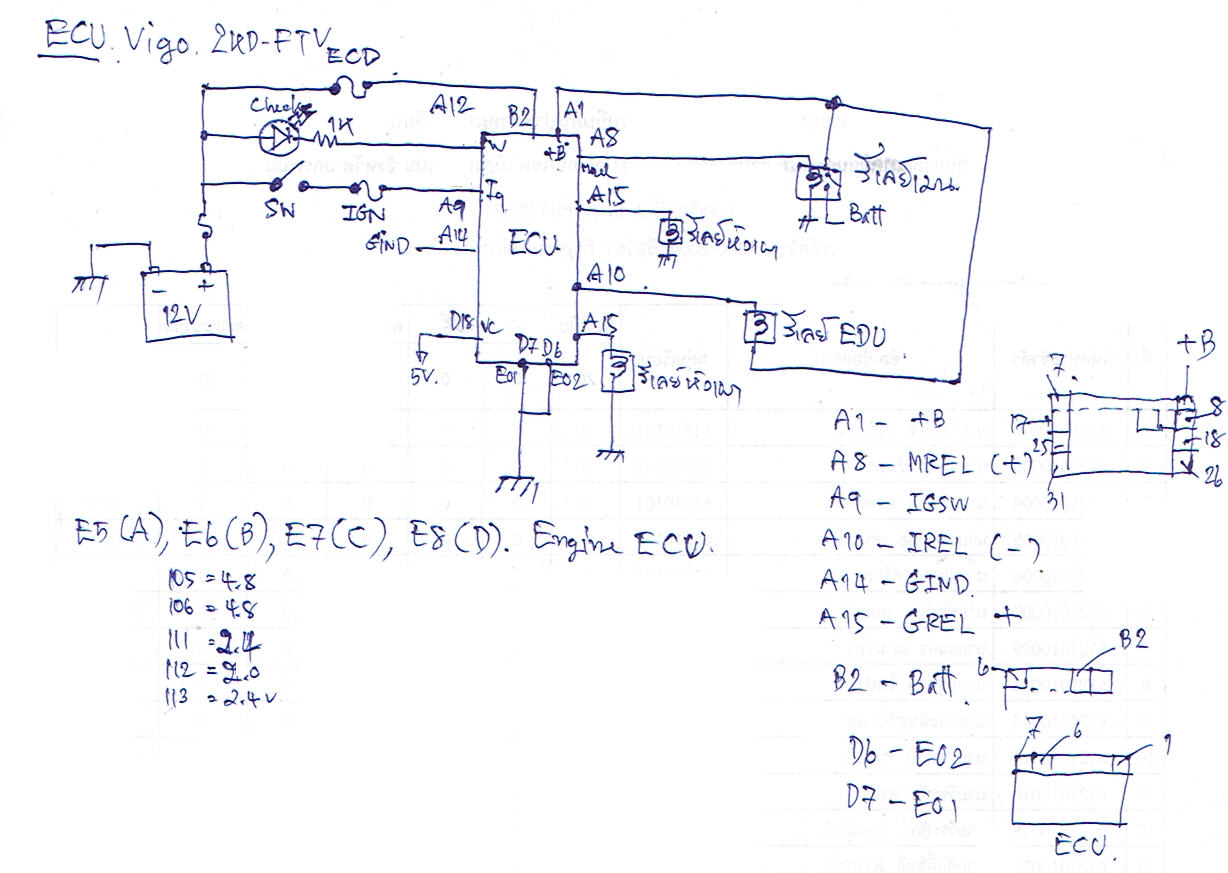 ECU. Vigo. 2KD-FTV
ECD
Check
1K
A12
B2
A1
W
+B
A8
Mrel
รีเลย์เมน
Batt
SW
IGN
A9
Ig
A15
รีเลย์หัวเผา
GIND
A14
ECU
12V
- +
A10
รีเลย์ EDU
D18
VC
5V.
D7 D6
E01 E02
A15
รีเลย์หัวเผา
+B
7
8
17
18
25
26
31
A1 - +B
A8 - MREL (+)
A9 - IGSW
A10 - IREL (-)
A14 - GIND
A15 - GREL +
B2 - Batt.
6
B2
D6 - E02
D7 - E01
7 6 1
ECU.
E5 (A), E6 (B), E7 (C), E8 (D). Engine ECU.
105 = 4.8
106 = 4.8
111 = 2.4
112 = 2.0
113 = 2.4 V